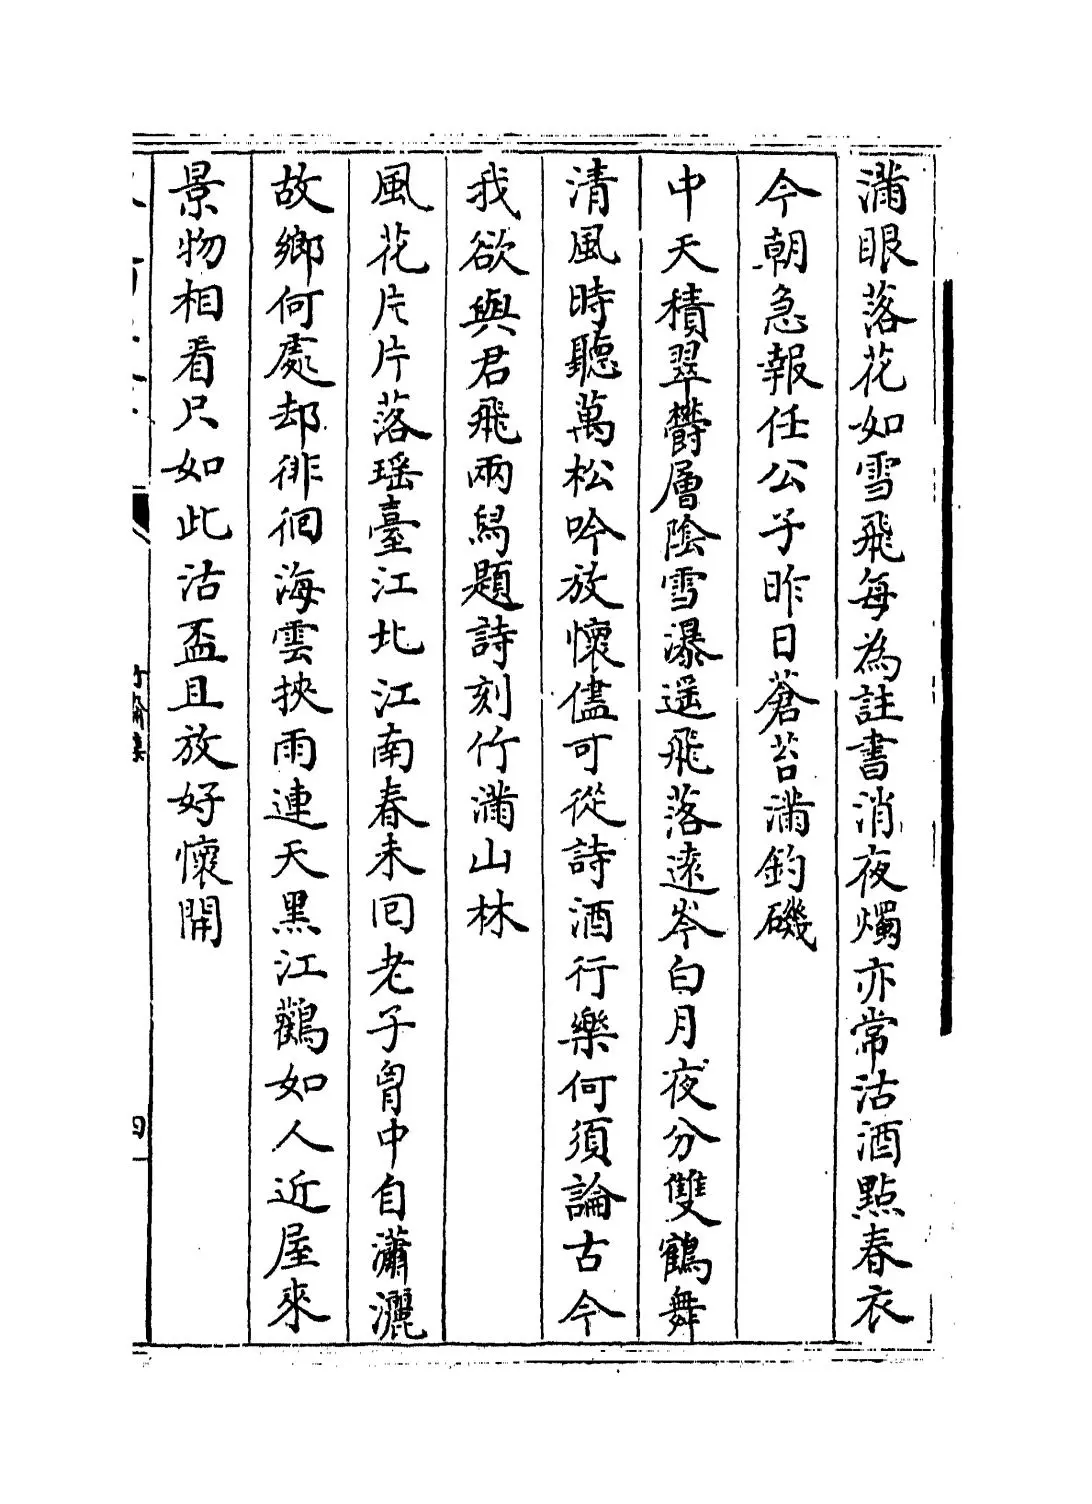 滿眼落花如雪飛每為註書消夜燭亦常沽酒點春衣
今朝急報任公子昨日蒼苔滿釣磯
中天積翠欝層陰雪瀑遥飛落遠岑白月夜分雙鶴舞
清風時聽萬松吟放懷儘可從詩酒行樂何須論古今
我欲與君飛兩舄題詩刻竹滿山林
風花片片落瑶臺江北江南春未回老子胷中自瀟灑
故鄉何處却徘徊海雲挾雨連天黑江鸛如人近屋來
景物相看只如此沽盃且放好懷開